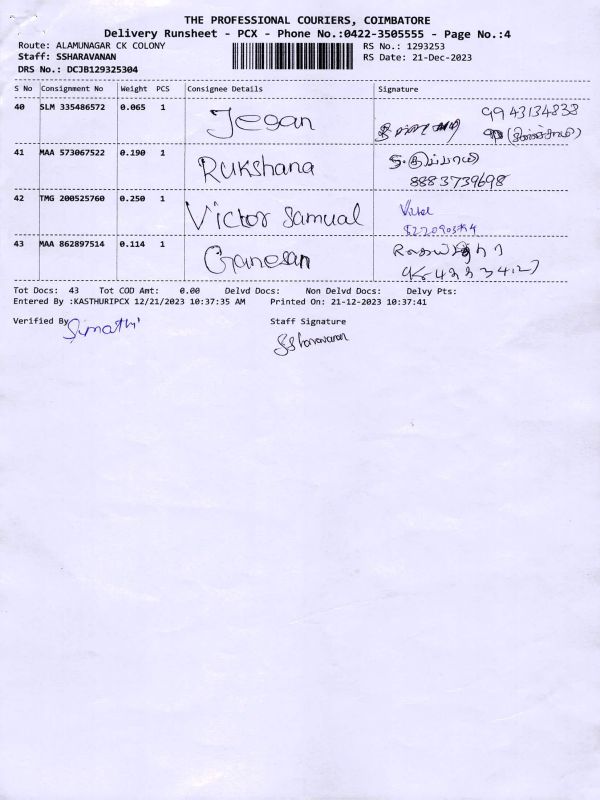 THE PROFESSIONAL COURIERS, COIMBATORE
Delivery Runsheet - PCX - Phone No.:0422-3505555 - Page No.:4
Route: ALAMUNAGAR CK COLONY RS No.: 1293253
Staff: SSHARAVANAN RS Date: 21-Dec-2023
DRS No.: DCJB129325304
S No Consignment No Weight PCS Consignee Details Signature
40 SLM 335486572 0.065 1 Jegan 9943134838
41 MAA 573067522 0.190 1 Rukshana
8883739698
42 TMG 200525760 0.250 1 Victor Samual
43 MAA 862897514 0.114 1 Ganesan
Tot Docs: 43 Tot COD Amt: 0.00 Delvd Docs: Non Delvd Docs: Delvy Pts:
Entered By :KASTHURIPCX 12/21/2023 10:37:35 AM Printed On: 21-12-2023 10:37:41
Verified By Staff Signature
SSharavanan